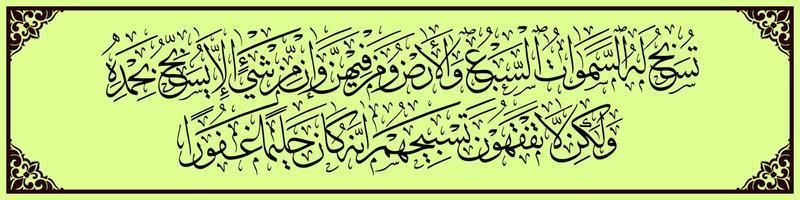 تُسَبِّحُ لَهُ السَّمَوَاتُ السَّبْعُ وَالْأَرْضُ وَمَنْ فِيهِنَّ وَإِنْ مِنْ شَيْءٍ إِلَّا يُسَبِّحُ بِحَمْدِهِ
وَلَكِنْ لَا تَفْقَهُونَ تَسْبِيحَهُمْ إِنَّهُ كَانَ حَلِيمًا غَفُورًا